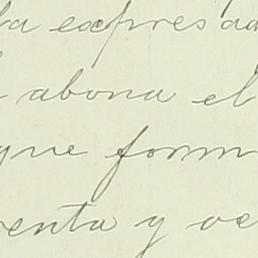 la expresad
abona el
que form
enta y oc